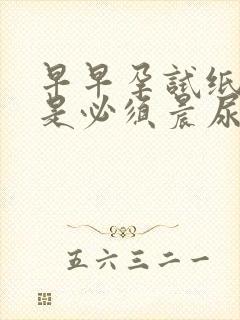 早早孕試纸
是必须晨尿
五六三二一